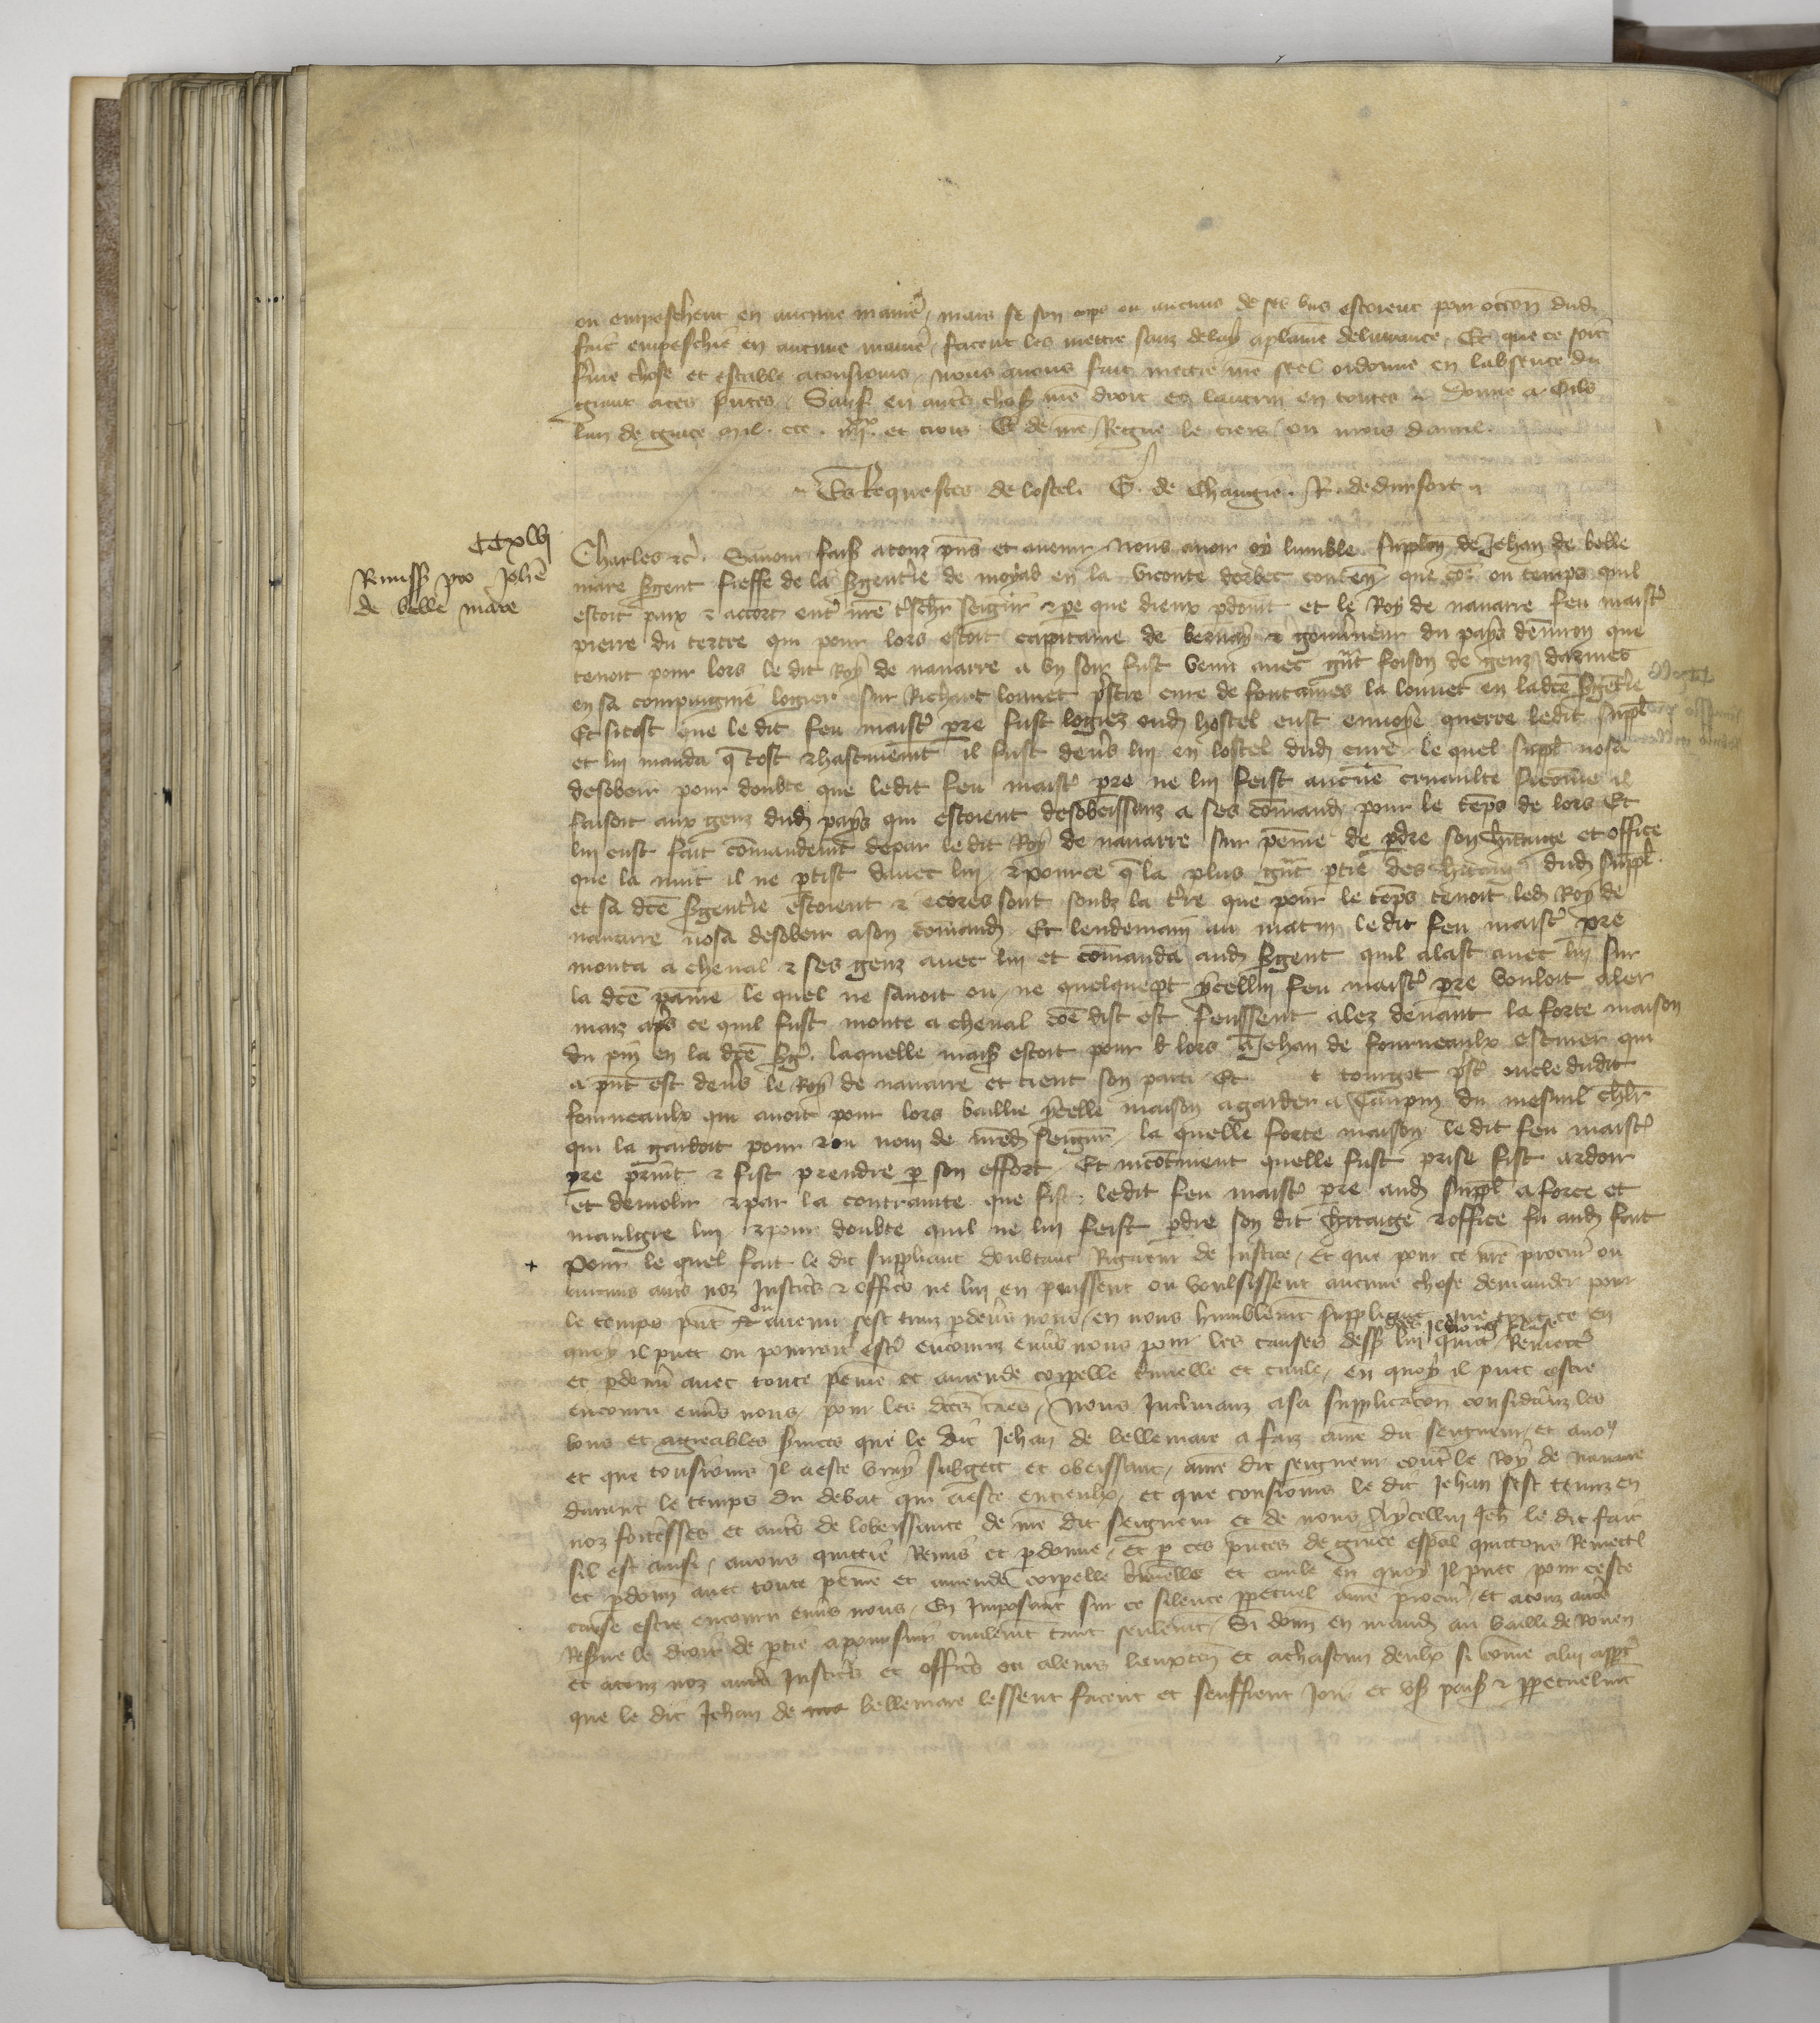 ou empeschent en aucune manie, mais se son corps ou aucuns de ses biens estoient pour occon dud
fait empeschie en aucune manie, facent les mettre sanz delay a plaine delivrance, Et que ce soit
ferme chose et estable a tousiours, nous avons fait mettre nre seel ordonne en labsence du
grant a ces pntes, Sauf en autres choses nre droit et lautrui en toutes. Donne a
lan de grace mil. ccc. iiii.xx et trois Et de nre Regne le tiers, ou mois davril.
Es Requestes de lostel. G. de Chaugie. R. de dunfort
CCxlvi
Remiss pro Johe
de belle mare
Charles etc. Savoir fais a touz pns et avenir Nous avoir oy lumble supplon de Jehan de belle
mare sgent fieffe de la sgenterie de moyab en la viconte dorbec conten, que come ou temps quil
estoit paix et accort entre nre tschr seignr et pe que dieux pdoint et le Roy de navarre feu maistre
pierre du tertre qui pour lors estoit capitaine de bernay et gouverneur du pays denviron que
tenoit pour lors le dit Roy de navarre a un soir fust venu avec gnt foison de genz darmes
en sa compaignie logier sur Richart louvet pstre cure de fontaines la louvet en ladce sgterie
Et sitost que le dit feu maistre pre fust logiez oud hostel eust envoye querre ledit suppl
et lui manda q tost et hastivement il fust devs lui en lostel dud cure le quel suppl nosa
desobeir pour doubte que ledit feu maistre pre ne lui feist aucune cruaulte sicomme il
faisoit aux genz dud pays qui estoient desobeissanz a ses comand pour le temps de lors Et
lui eust fait comandemt depar le dit Roy de navarre sur peine de pdre son hitaige et office
que la nuit il ne ptist davec lui, et pource q la plus gnt ptie des hitaig dud suppl
et sa dce sgenterie estoient et ecores sont soubz la tre que pour le temps tenoit led Roy de
navarre nosa desobeir a son comand Et lendemain au matin le dit feu maistre pre
monta a cheval et ses genz avec lui et comanda aud sgent quil alast avec lui sur
la dce paine, le quel ne savoit ou, ne quelque pt ycellui feu maistre pre vouloit aler
maiz aps ce quil fust monte a cheval coe dist est feussent alez devant la forte maison
du pin en la dce sg. laquelle mais estoit pour lors a Jehan de fourneaulx escuier qui
a pnt est devs le Roy de navarre et tient son parti Et t tourgot pstre oncle dudit
fourneaulx qui avoit pour lors baillie ycelle maison a garder a Taupin du mesnil chlr
qui la gardoit pour et ou nom de nred seignr, la quelle forte maison le dit feu maistre
pre print et fist prendre p son effort, Et incotinent quelle fust prise fist ardoir
et demolir et par la contrainte que fist. ledit feu maistre pre aud suppl a force et
maulgre lui et pour doubte quil ne lui feist pdre son dit hitaige et office fu aud fait
+ Pour le quel fait le dit suppliant doubtant Rigueur de Justice, Et que pour ce nre procur ou
aucuns autres noz Justices et offices ne lui en peussent ou voulsissent aucune chose demander pour
le temps pnt ou avenir sest traiz pdevs nous, en nous humblement suppliant que tout ce en
quoy il puet ou pourroit estre encouruz envs nous pour les causes dess lui quitt Remettre
et pdoner avec toute peine et amende corpelle criminelle et civile, en quoy il puet estre
encouru envs nous, pour les dces caes, Nous Inclinanz a sa supplicacon considanz les
bons et agreables services que le dit Jehan de bellemare a faiz a nre dit seigneur, et a nous
et que tousiours il a este vray subgect et obeissant, a nre dit seigneur contre le Roy de Navarre
durant le temps du debat qui a este entreulx, et que tousiours le dit Jehan sest tenuz en
noz fortesses et autres de lobeissance de nre dit seigneur et de nous, A ycellui Jeh le dit fait
sil est ainsi, avons quittie Remis et pdonne, Et p ces pntes de grace espal quittons Remectt
et pdonn avec toute peine et amende corpelle criminelle et civile en quoy il puet pour ceste
cause estre encouru envs nous, En Imposant sur ce silence ppetuel a nre procur, Et a touz autres
Resve le droit de ptie a poursuir civilemt tant seulemt, Si donn en mand au bailli de Rouen
et a touz noz autres Justices et offices ou a leurs lieuxten Et a chascun deulx si come a lui appt
que le dit Jehan de bellemare lessent facent et seuffrent Joir et us paisi et ppetuelmt